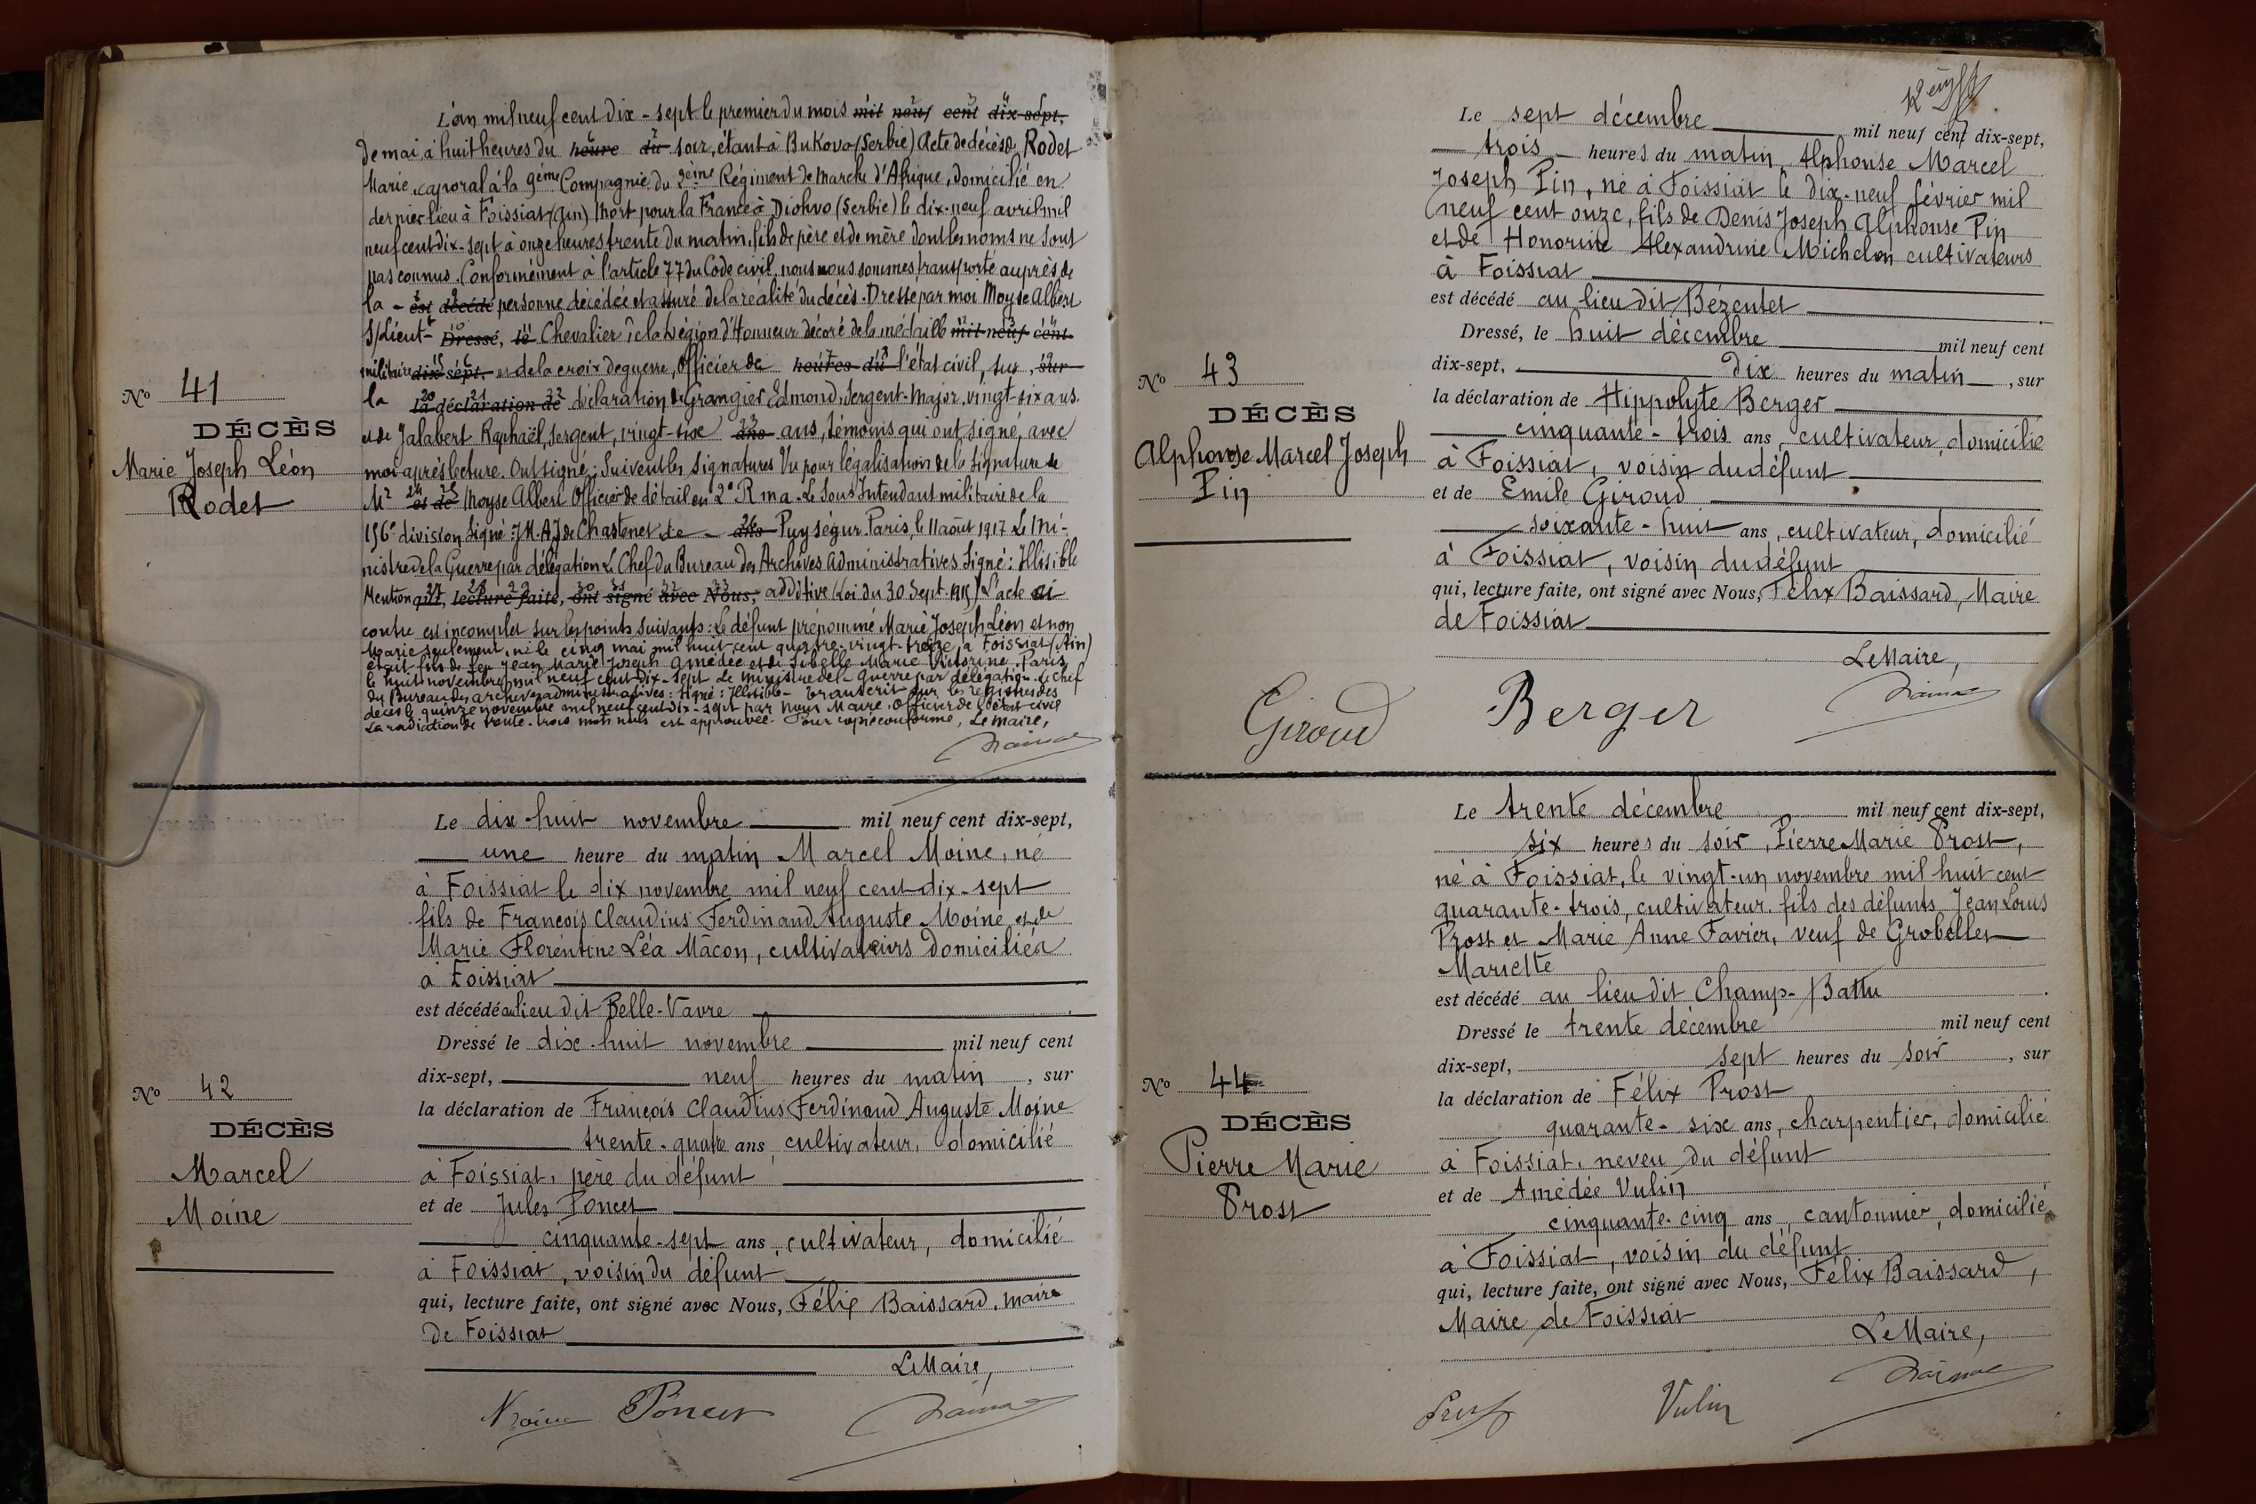 N° 41
DÉCÈS
Marie Joseph Léon
Rodet
L'an mil neuf cent dix-sept le premier du mois mil neuf cent dix-sept,
de mai à huit heures du heure du soir, étant à Bukovo (Serbie) Acte de décès de Rodet
Marie, caporal à la 9ème Compagnie du 2ème Régiment de Marche d'Afrique, domicilié en
dernier lieu à Foissiat (Ain) Mort pour la France à Diohvo (Serbie) le dix-neuf avril mil
neuf cent dix-sept à onze heures trente du matin, fils de père et de mère dont les noms ne sont
pas connus. Conformément à l'article 77 du Code civil, nous nous sommes transporté auprès de
la - est décédé personne décédée et assuré de la réalité du décès. Dressé par moi Moyse Albert
S/Lieut- Dressé, le Chevalier de la Légion d'Honneur décoré de la médaille mil neuf cent
militaire dix-sept, et de la croix de guerre, Officier de heures du l'état civil, sur, sur
la la déclaration de déclaration de Grangier Edmond, Sergent-Major, vingt-six ans.
et de Jalabert Raphaël, Sergent, vingt-six ans ans, témoins qui ont signé, avec
moi après lecture. Ont signé: Suivent les signatures Vu pour légalisation de la signature de
Mr et de Moyse Albert Officier de détail en 2e R m a. Le Sous Intendant militaire de la
156e division Signé: J.M.A.J. de Chastenet de - ans Puységur. Paris, le 11 août 1917 Le Mi-
nistre de la Guerre par délégation Le Chef du Bureau des Archives Administratives Signé: Illisible
Mention qui, lecture faite, ont signé avec Nous, additive (Loi du 30 Sept. 1915) L'acte ci
contre est incomplet sur les points suivants: Le défunt prénommé Marie Joseph Léon et non
Marie seulement, né le cinq mai mil huit cent quatre-vingt-treize, à Foissiat (Ain)
était fils de feu Jean Marie Joseph Amédée et de Sibelle Marie Victorine. Paris,
le huit novembre mil neuf cent dix-sept Le Ministre de la Guerre par délégation. Le Chef
du Bureau des archives administratives: signé: Illisible - Transcrit sur les registres des
décès le quinze novembre mil neuf cent dix-sept par Nous Maire. Officier de l'état civil
La radiation de trente-trois mots nuls est approuvée. Pour copie conforme, Le Maire,
N° 42
DÉCÈS
Marcel
Moine
Le dix-huit novembre mil neuf cent dix-sept,
une heure du matin Marcel Moine, né
à Foissiat le dix novembre mil neuf cent dix-sept
fils de François Claudius Ferdinand Auguste Moine et de
Marie Florentine Léa Mâcon, cultivateurs domiciliés
à Foissiat
est décédé au lieu dit Belle-Vavre
Dressé le dix-huit novembre mil neuf cent
dix-sept, neuf heures du matin, sur
la déclaration de François Claudius Ferdinand Auguste Moine
trente-quatre ans, cultivateur, domicilié
à Foissiat, père du défunt
et de Jules Poncet
cinquante-sept ans, cultivateur, domicilié
à Foissiat, voisin du défunt
qui, lecture faite, ont signé avec Nous, Félix Baissard, maire
de Foissiat
Le Maire,
Moine Poncet
N° 43
DÉCÈS
Alphonse Marcel Joseph
Pin
Le sept décembre mil neuf cent dix-sept,
trois heures du matin, Alphonse Marcel
Joseph Pin, né à Foissiat le dix-neuf février mil
neuf cent onze, fils de Denis Joseph Alphonse Pin
et de Honorine Alexandrine Michelon cultivateurs
à Foissiat
est décédé au lieu dit Bézentet
Dressé, le huit décembre mil neuf cent
dix-sept, dix heures du matin, sur
la déclaration de Hippolyte Berger
cinquante-trois ans, cultivateur, domicilié
à Foissiat, voisin du défunt
et de Emile Giroud
soixante-huit ans, cultivateur, domicilié
à Foissiat, voisin du défunt
qui, lecture faite, ont signé avec Nous, Félix Baissard, Maire
de Foissiat
Le Maire,
Giroud Berger
N° 44
DÉCÈS
Pierre Marie
Prost
Le trente décembre mil neuf cent dix-sept,
six heures du soir, Pierre Marie Prost,
né à Foissiat, le vingt-un novembre mil huit cent
quarante-trois, cultivateur, fils des défunts Jean Louis
Prost et Marie Anne Favier, veuf de Grobellet
Mariette
est décédé au lieu dit Champ-Battu
Dressé le trente décembre mil neuf cent
dix-sept, sept heures du soir, sur
la déclaration de Félix Prost
quarante-six ans, charpentier, domicilié
à Foissiat, neveu du défunt
et de Amédée Vulin
cinquante-cinq ans, cantonnier, domicilié
à Foissiat, voisin du défunt
qui, lecture faite, ont signé avec Nous, Félix Baissard,
Maire de Foissiat
Le Maire,
Prost Vulin